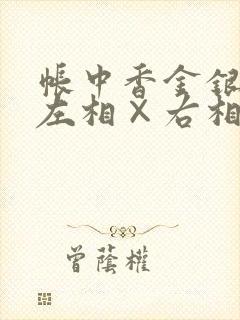 帳中香金銀
左相×右相
曾蔭權